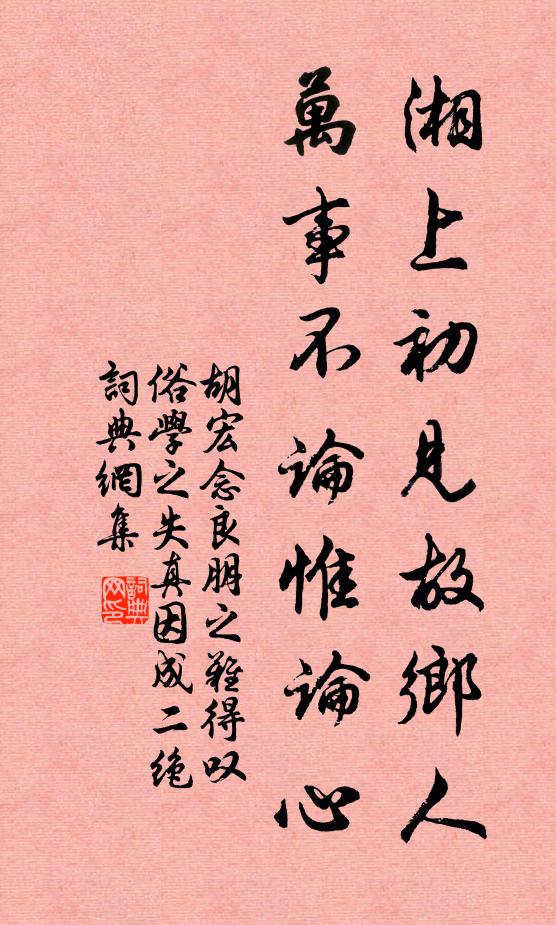 湘上初見故鄉人
萬事不論惟論心
胡宏念良朋之難得叹
俗學之失真因成二绝
詞典網集
詞典網印